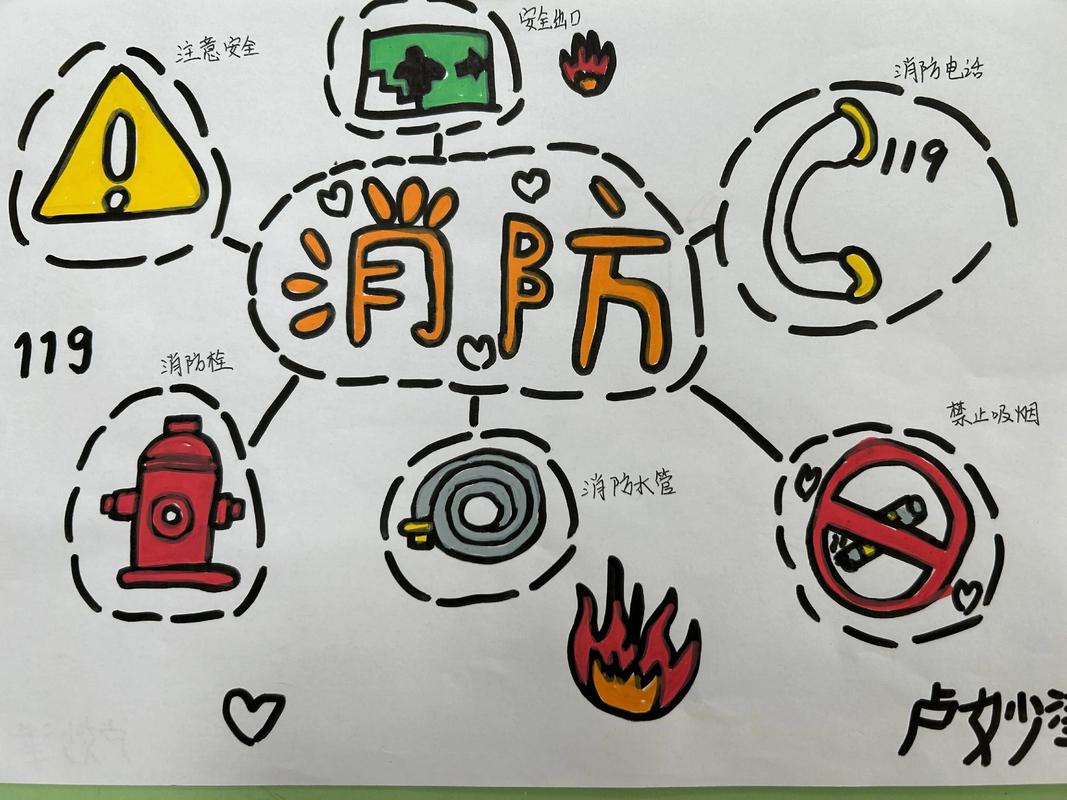 安全出口
注意安全
消防电话
119
消防
119
消防栓
禁止吸烟
消防水管
卢妙